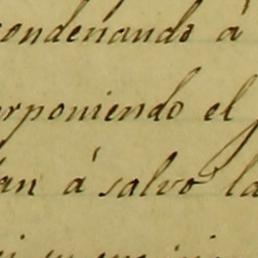 condenando á
erponiendo el
an á salvo la